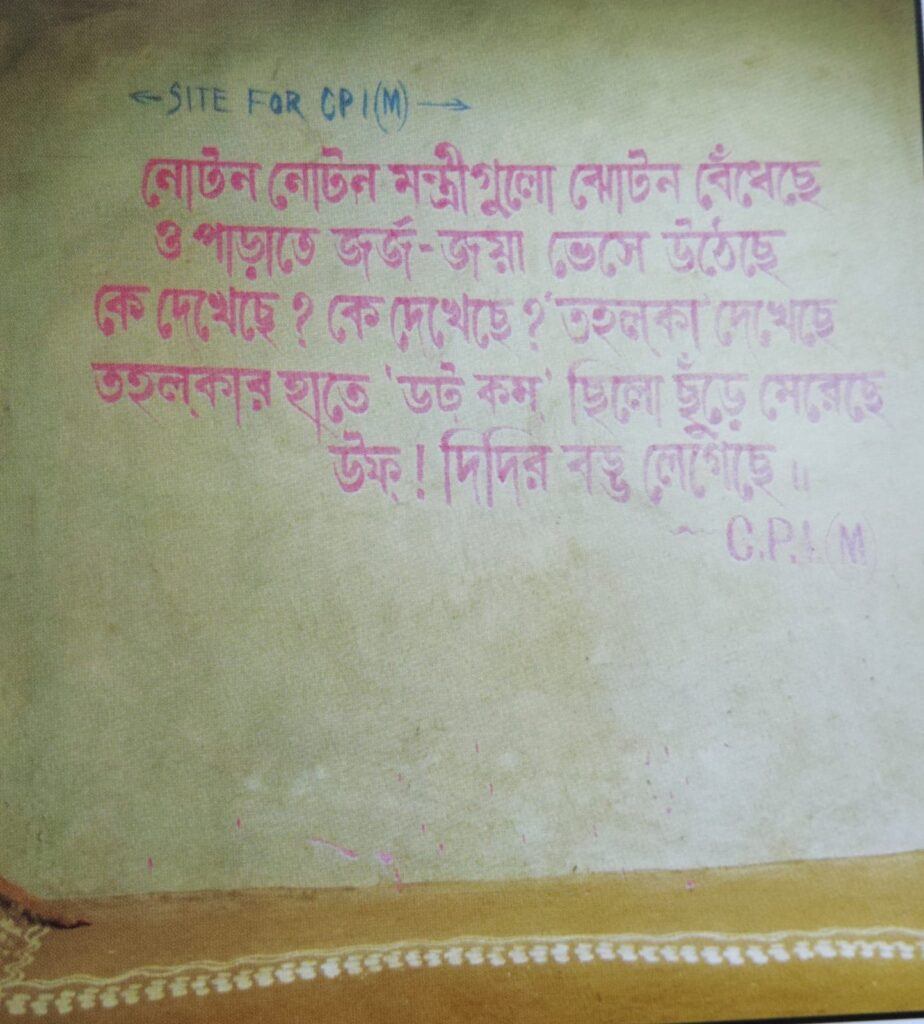 ←SITE FOR CPI(M)→
নোটন নোটন মন্ত্রীগুলো ঝোটন বেঁধেছে
ও পাড়াতে জর্জ-জয়া ভেসে উঠেছে
কে দেখেছে ? কে দেখেছে ? 'তহল্‌কা' দেখেছে
তহল্‌কার হাতে 'ডট্ কম্' ছিলো ছুঁড়ে মেরেছে
উফ্ ! দিদির বড্ড লেগেছে ৷৷
~ C.P.I.(M)